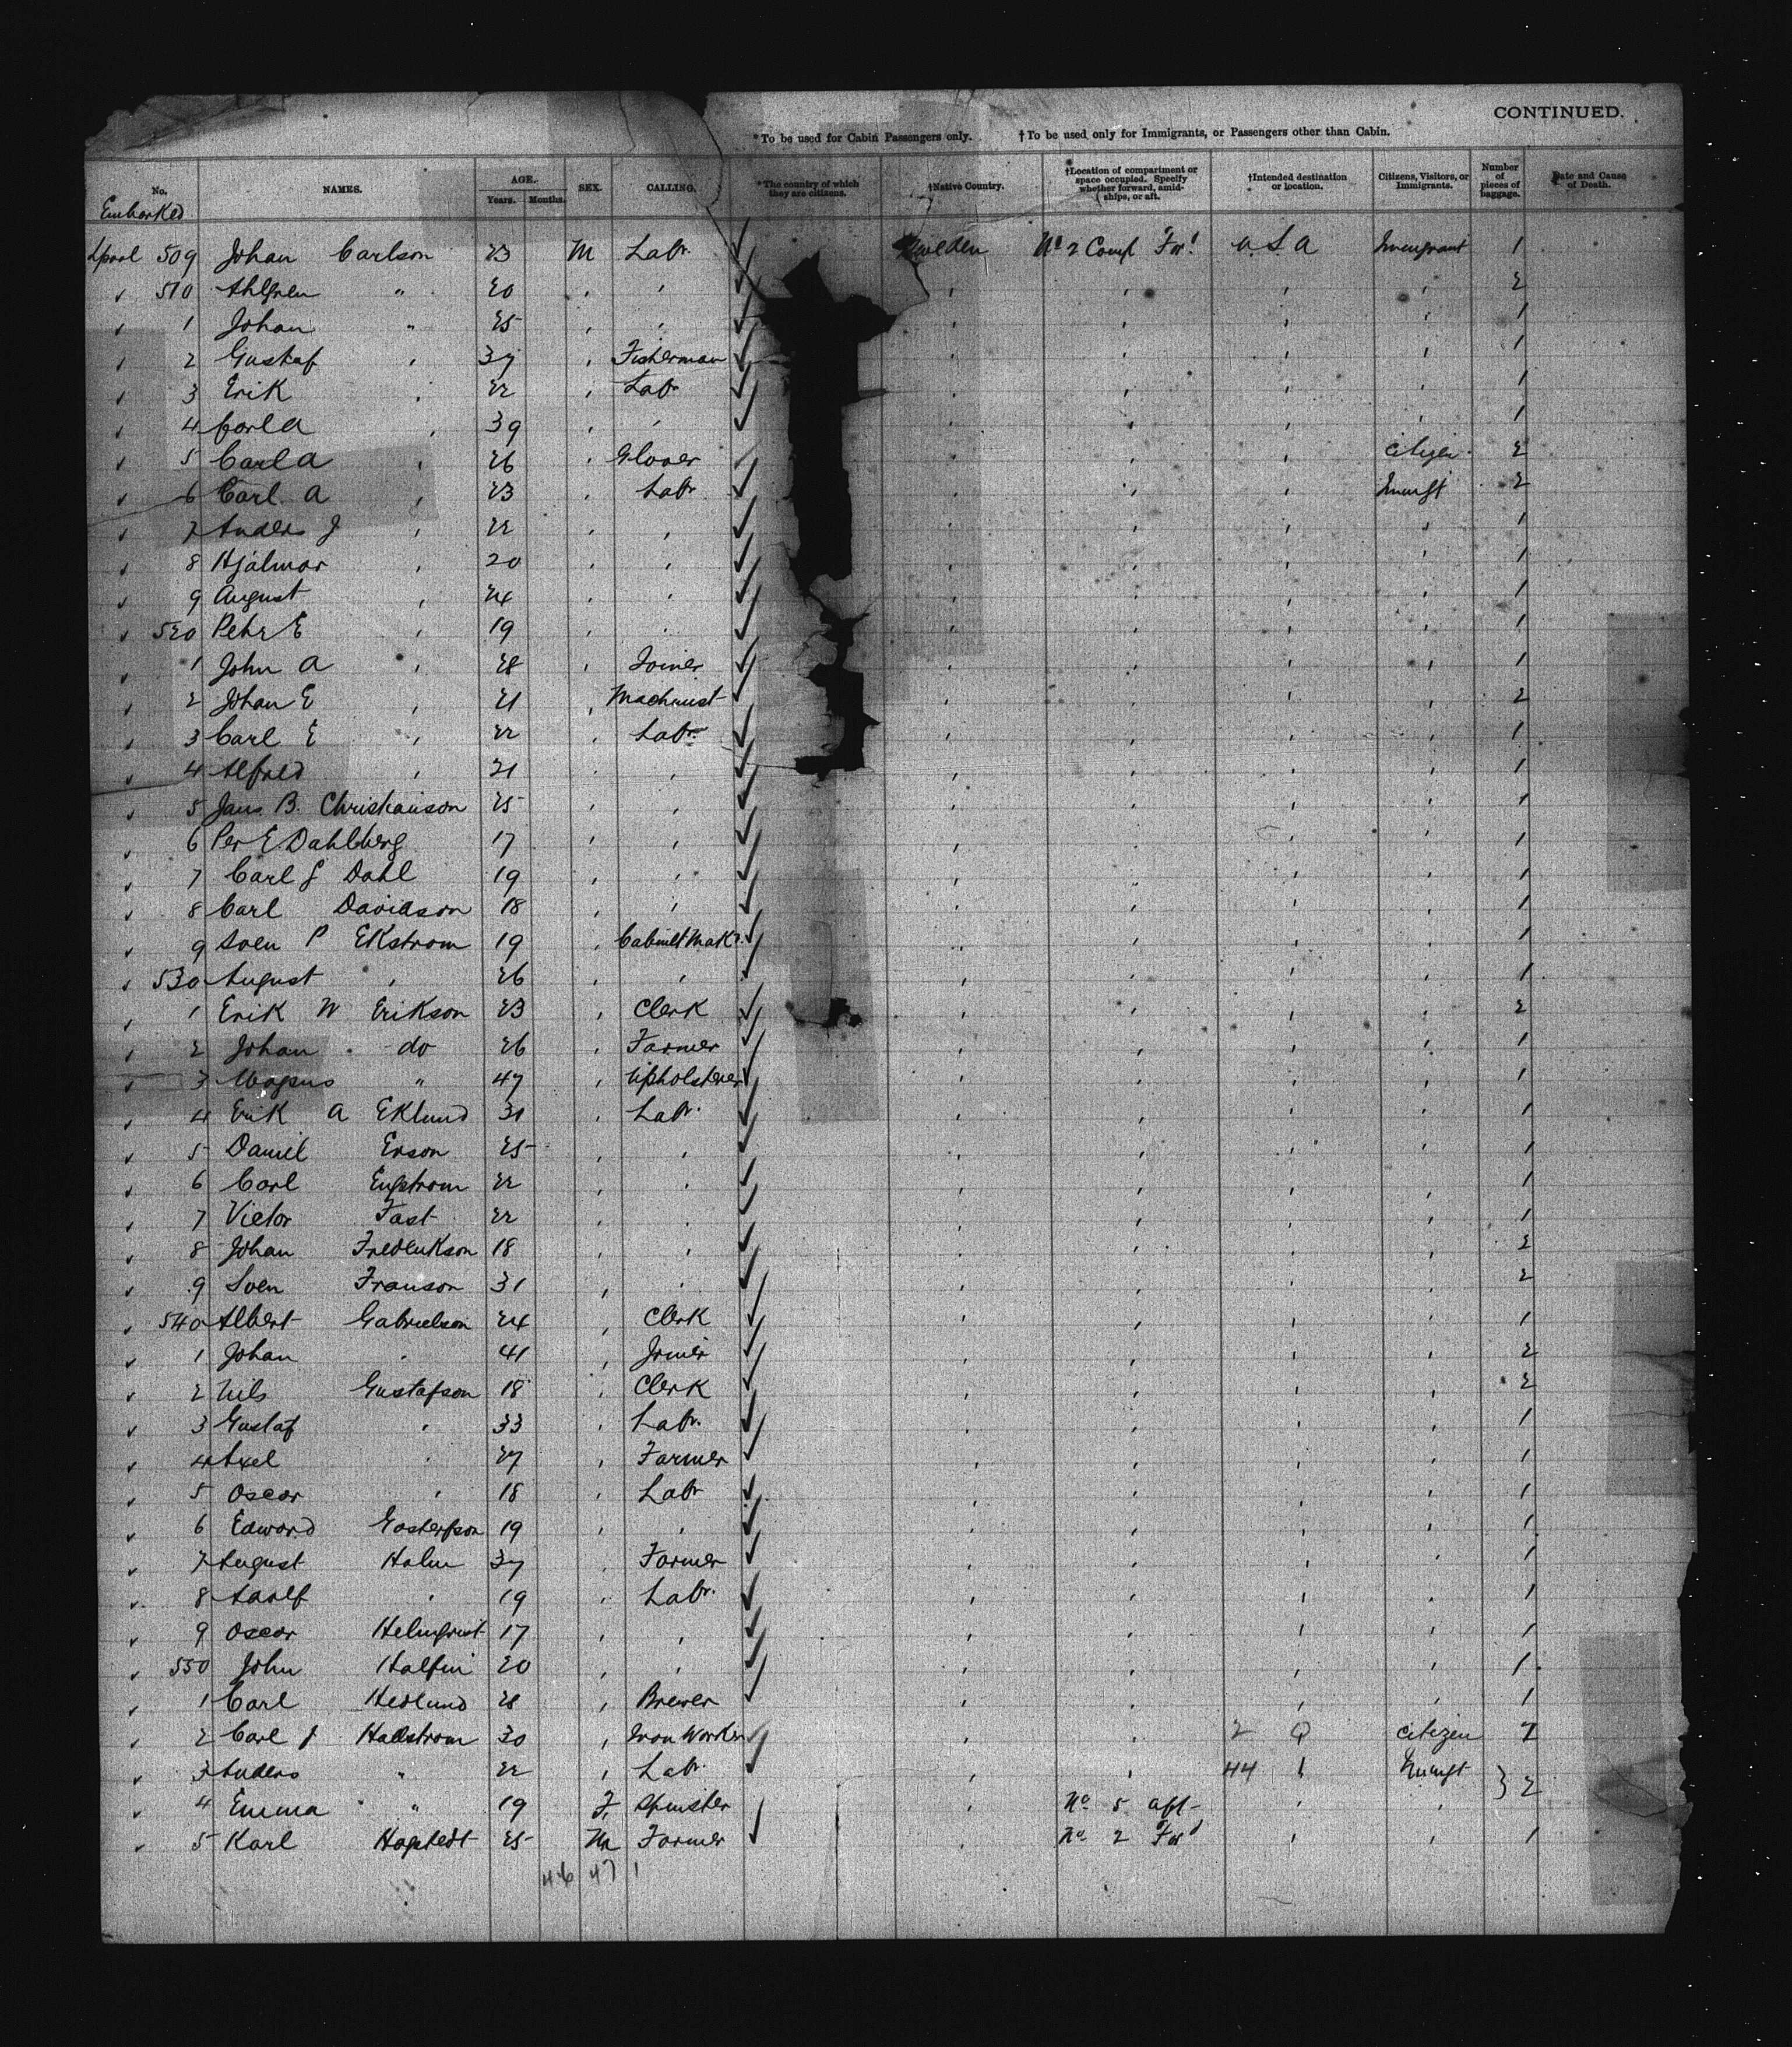 CONTINUED.
*To be used for Cabin Passengers only. †To be used only for Immigrants, or Passengers other than Cabin.
No. NAMES. AGE. Years. Months. SEX. CALLING. *The country of which they are citizens. †Native Country. †Location of compartment or space occupied. Specify whether forward, amidships, or aft. †Intended destination or location. Citizens, Visitors, or Immigrants. Number of pieces of baggage. Date and Cause of Death.
Embarked
Lpool 509 Johan Carlson 23 M Labr. ✓ Sweden No 2 Compt For'd U.S.A Immigrant 1
" 510 Ahlgren " 20 " " ✓ " " " " 2
" 1 Johan " 25 " " ✓ " " " " 1
" 2 Gustaf " 37 " Fisherman ✓ " " " " 1
" 3 Erik " 22 " Labr ✓ " " " " 1
" 4 Carl A " 39 " " ✓ " " " " 1
" 5 Carl A " 26 " Glover ✓ " " " Citizen 2
" 6 Carl. A " 23 " Labr ✓ " " " Immgt 2
" 7 Anders J " 22 " " ✓ " " " " 1
" 8 Hjalmar " 20 " " ✓ " " " " 1
" 9 August " 24 " " ✓ " " " " 1
" 520 Pehr E " 19 " " ✓ " " " " 1
" 1 John A " 28 " Joiner ✓ " " " " 1
" 2 Johan E " 21 " Machinist ✓ " " " " 2
" 3 Carl E " 22 " Labr ✓ " " " " 1
" 4 Alfred " 21 " " ✓ " " " " 1
" 5 Jans B. Christianson 25 " " ✓ " " " " 1
" 6 Per E Dahlberg 17 " " ✓ " " " " 1
" 7 Carl G Dahl 19 " " ✓ " " " " 1
" 8 Carl Davidson 18 " " ✓ " " " " 1
" 9 Sven P Ekstrom 19 " Cabinet Makr ✓ " " " " 1
" 530 August " 26 " " ✓ " " " " 1
" 1 Erik W Erikson 23 " Clerk ✓ " " " " 2
" 2 Johan do 26 " Farmer ✓ " " " " 1
" 3 Magnus " 47 " Upholsterer ✓ " " " " 1
" 4 Erik A Eklund 31 " Labr. ✓ " " " " 1
" 5 Daniel Erson 25 " " ✓ " " " " 1
" 6 Carl Engstrom 22 " " ✓ " " " " 1
" 7 Victor Fast 22 " " ✓ " " " " 1
" 8 Johan Fredrikson 18 " " ✓ " " " " 2
" 9 Sven Franson 31 " " ✓ " " " " 2
" 540 Albert Gabrielson 24 " Clerk ✓ " " " " 1
" 1 Johan " 41 " Joiner ✓ " " " " 2
" 2 Nils Gustafson 18 " Clerk ✓ " " " " 2
" 3 Gustaf " 33 " Labr. ✓ " " " " 1
" 4 Axel " 27 " Farmer ✓ " " " " 1
" 5 Oscar " 18 " Labr ✓ " " " " 1
" 6 Edward Gosterfson 19 " " ✓ " " " " 1
" 7 August Holm 37 " Farmer ✓ " " " " 1
" 8 Adolf " 19 " Labr. ✓ " " " " 1
" 9 Oscar Helmqrist 17 " " ✓ " " " " 1
" 550 John Halfin 20 " " ✓ " " " " 1
" 1 Carl Hedlund 28 " Brewer ✓ " " " " 1
" 2 Carl J Hallstrom 30 " Iron Worker ✓ " " 2 Citizen
" 3 Anders " 22 " Labr. ✓ " " 44 Immgt } 2
" 4 Emma " 19 F. Spinster " No 5 aft " "
" 5 Karl Hogstedt 25 M Farmer ✓ " No 2 For'd " " 1
46 47 1